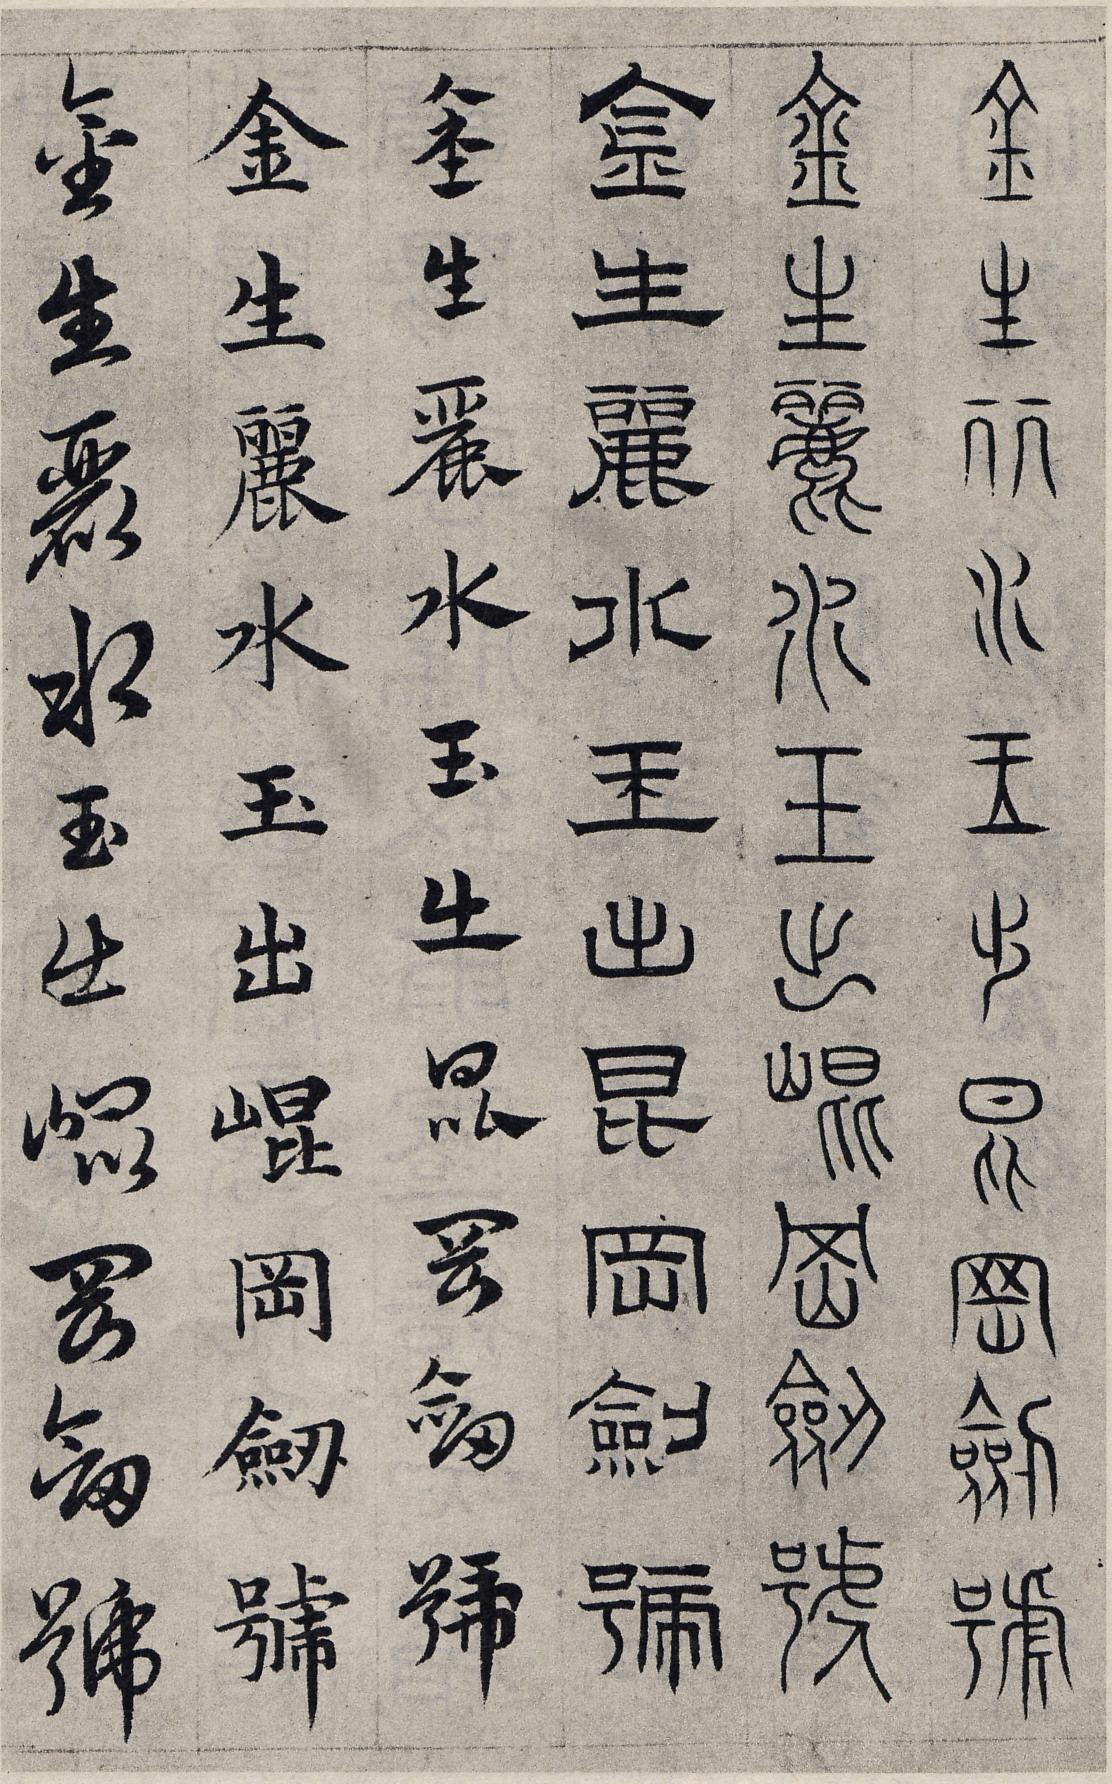 金生麗水玉出昆岡劍號
金生麗水玉出崐岡劒號
金生麗水玉出昆岡劍號
金生麗水玉出昆岡劒號
金生麗水玉出崐岡劒號
金生麗水玉出崐岡劒號